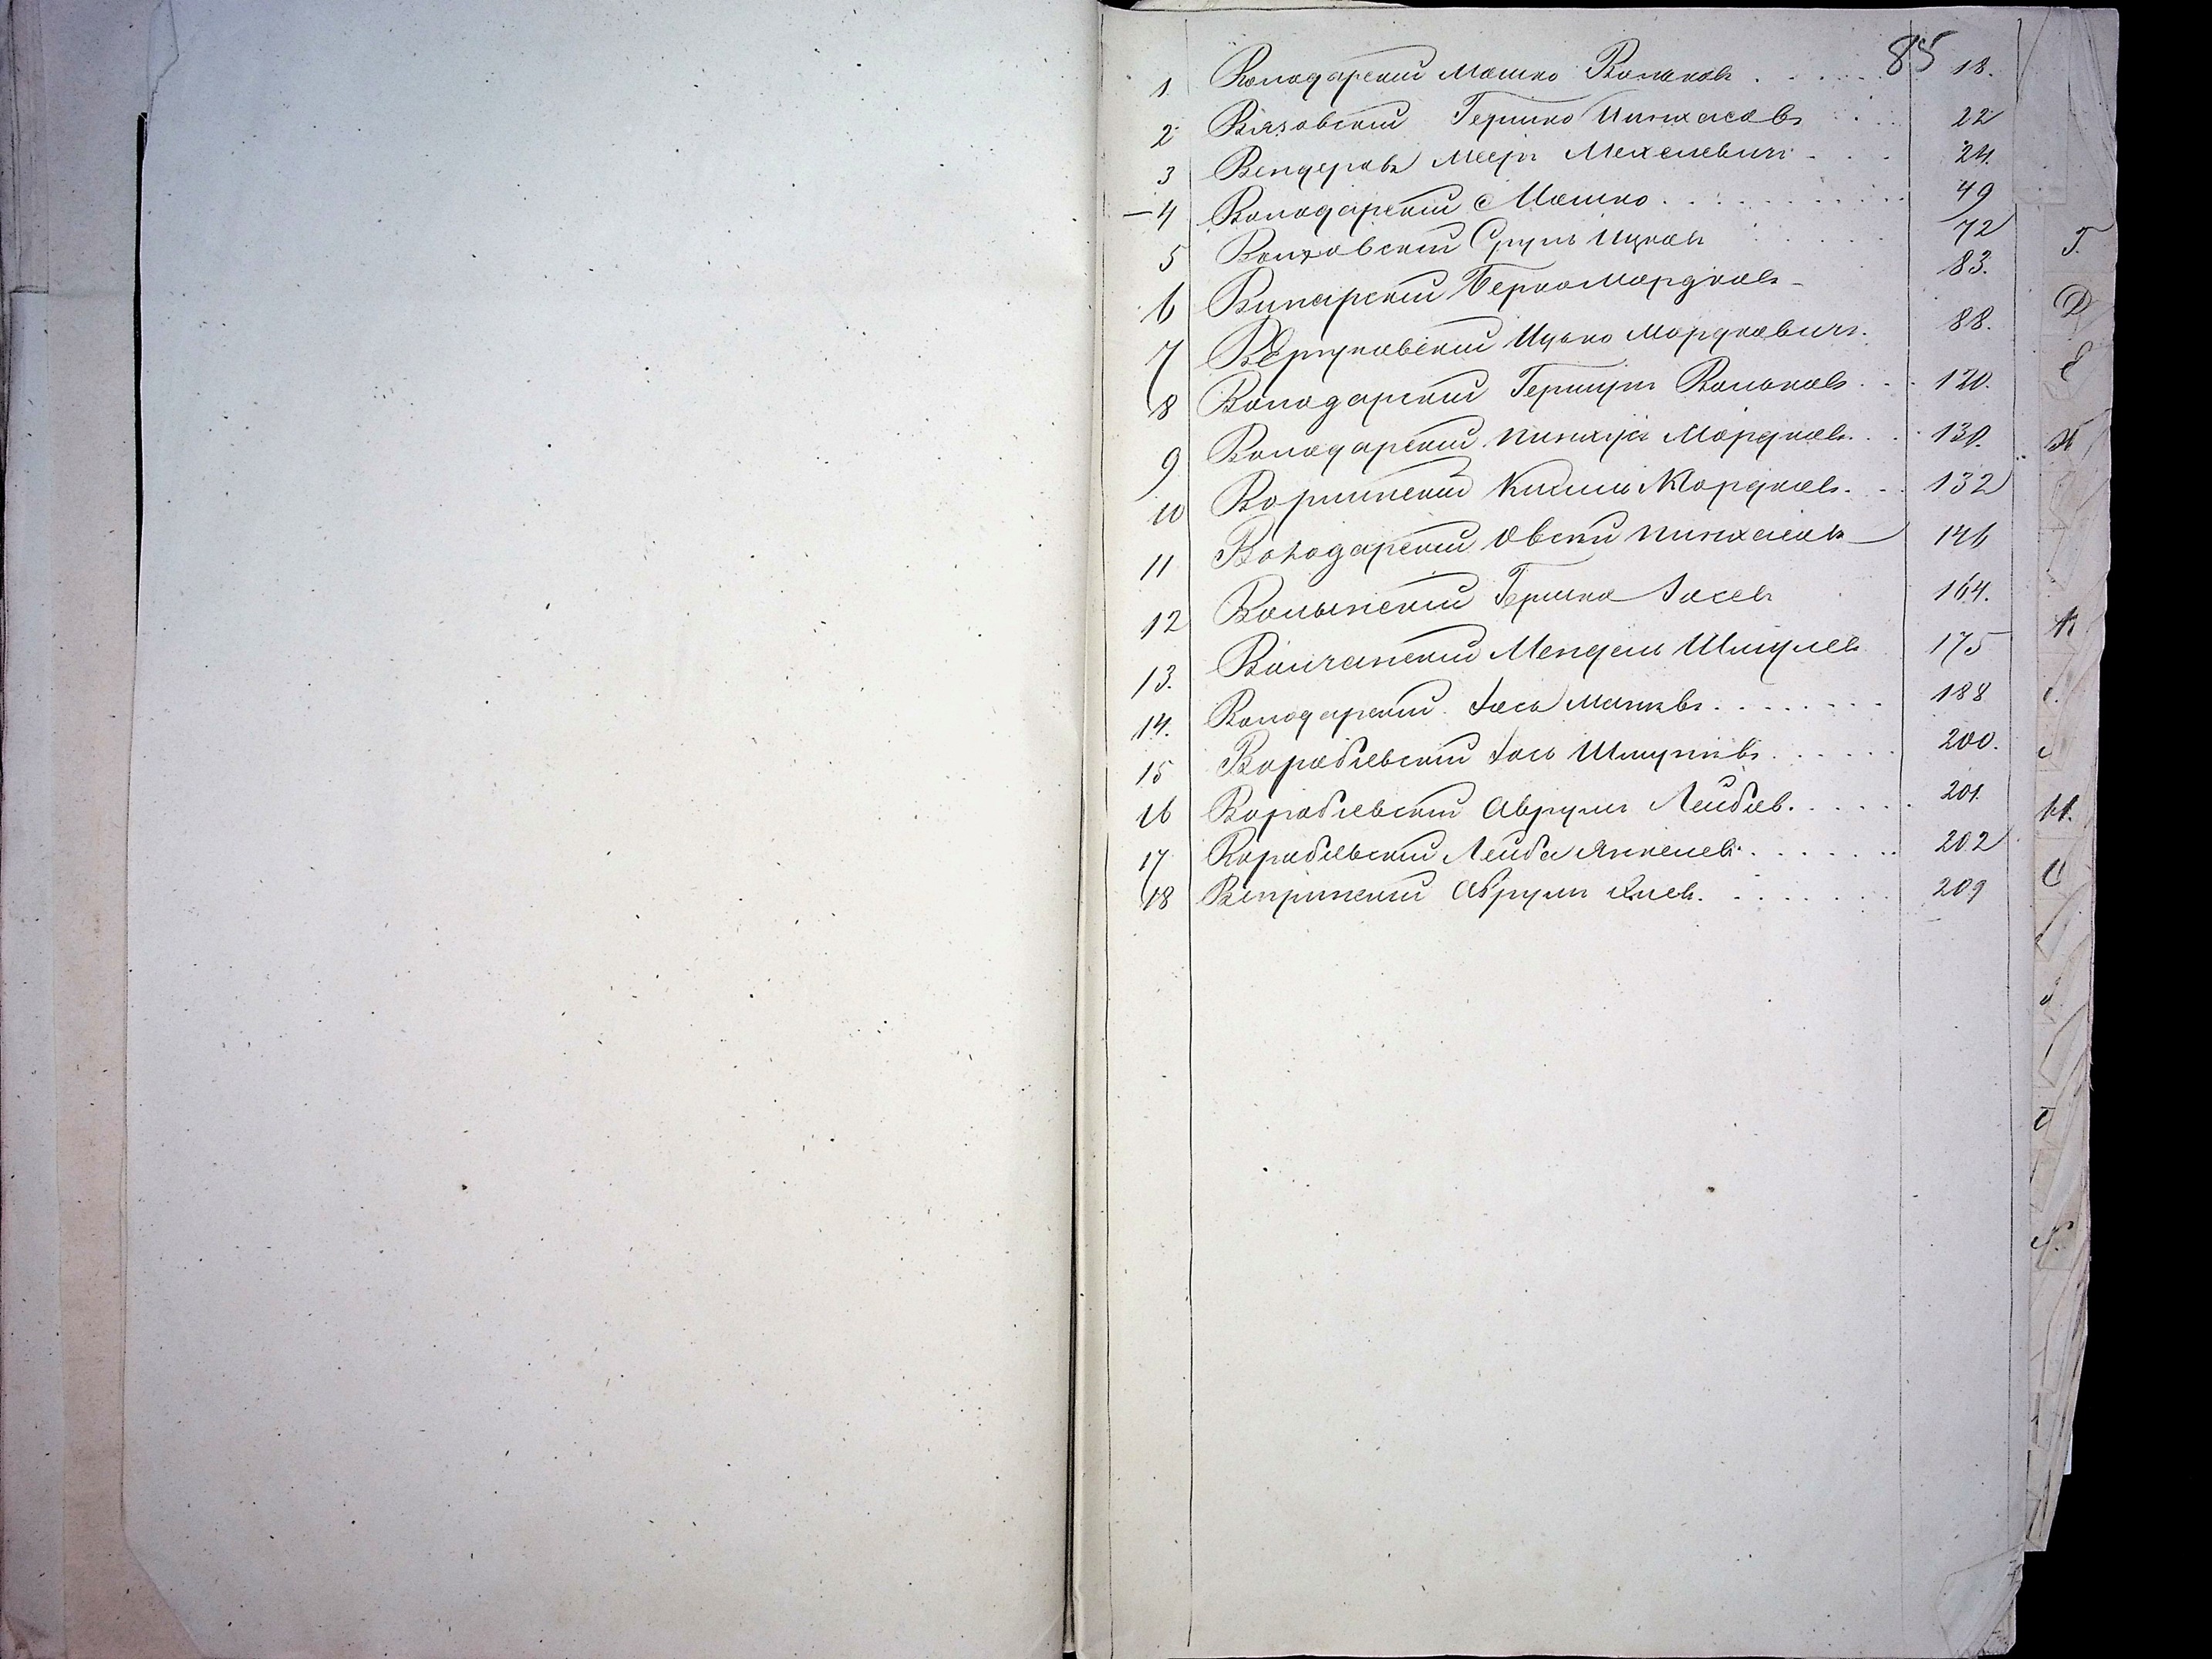 85
1. Володарскій Мошко Вольковъ . . . . . 18.
2 Вязовскій Гершко Пинхасовъ . . . 22
3 Вендеровъ Мееръ Мехелевичъ . . . 24.
—4 Володарскій Мошко . . . . . . . . . . 49
5 Волховскій Сруль Ицковъ . . . . . 72
6 Винарскій Берко Мордковъ - 83.
7 Вертуновскій Ицько Мордковичъ. 88.
8 Володарскій Гершунъ Вольковъ . . . 120.
9 Володарскій Пинхусъ Мордковъ . . . 130.
10 Мордковъ. . . 132
11 Володарскій Овсій Пинхасовъ 146
12 Волынскій Гершко Іосевъ 164.
13. Волчанскій Мендель Шмулевъ 175
14. Володарскій Іось . . . . . . . . 188
15 Воробіевскій Іось . . . . . . 200.
16 Воробіевскій Аврумъ Лейбовъ. . . . . . . 201.
17 Воробіевскій Лейба Янкелевъ. . . . . . . . 202
18 Веприцкій Аврумъ . . . . . . . . 209
Г.
Д
Е
Ж
К
Н.
О